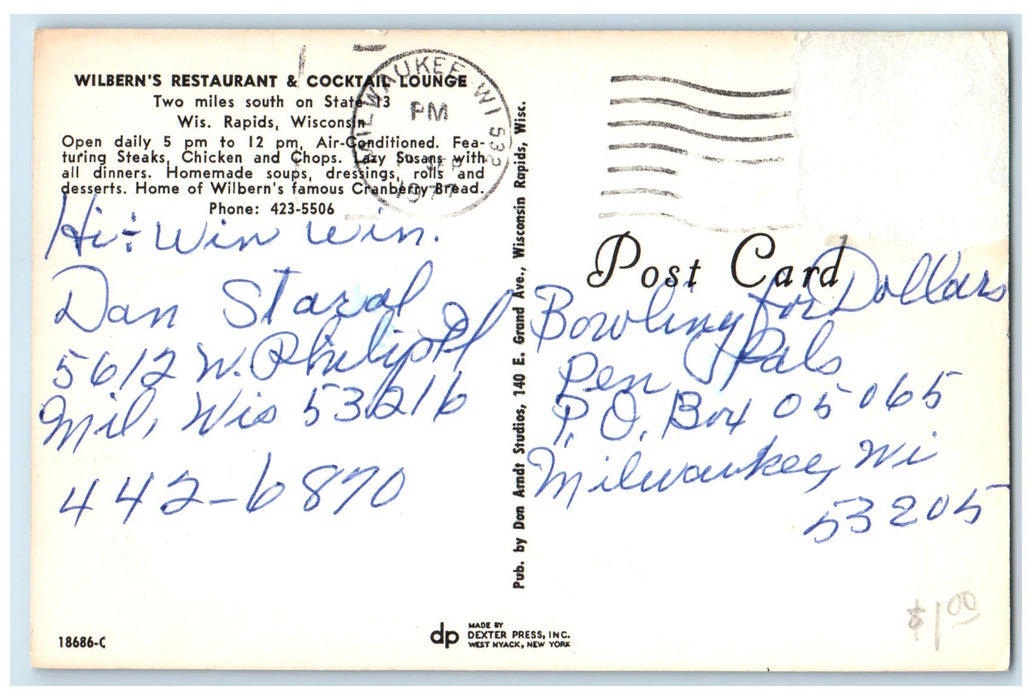 WILBERN'S RESTAURANT & COCKTAIL LOUNGE
Two miles south on State 13
Wis. Rapids, Wisconsin
Open daily 5 pm to 12 pm, Air-Conditioned. Fea-
turing Steaks, Chicken and Chops. Lazy Susans with
all dinners. Homemade soups, dressings, rolls and
desserts. Home of Wilbern's famous Cranberry Bread.
Phone: 423-5506
MILWAUKEE WI 532
PM
SEP
1977
Hi: Win Win.
Dan
5612 W. Philip Pl
Mil, Wis 53216
442-6870
Pub. by Don Arndt Studios, 140 E. Grand Ave., Wisconsin Rapids, Wisc.
Post Card
Bowling for Dollars
Pen Pals
P.O. Box 05065
Milwaukee, Wi
53205
$1.00
18686-C
dp
MADE BY
DEXTER PRESS, INC.
WEST NYACK, NEW YORK